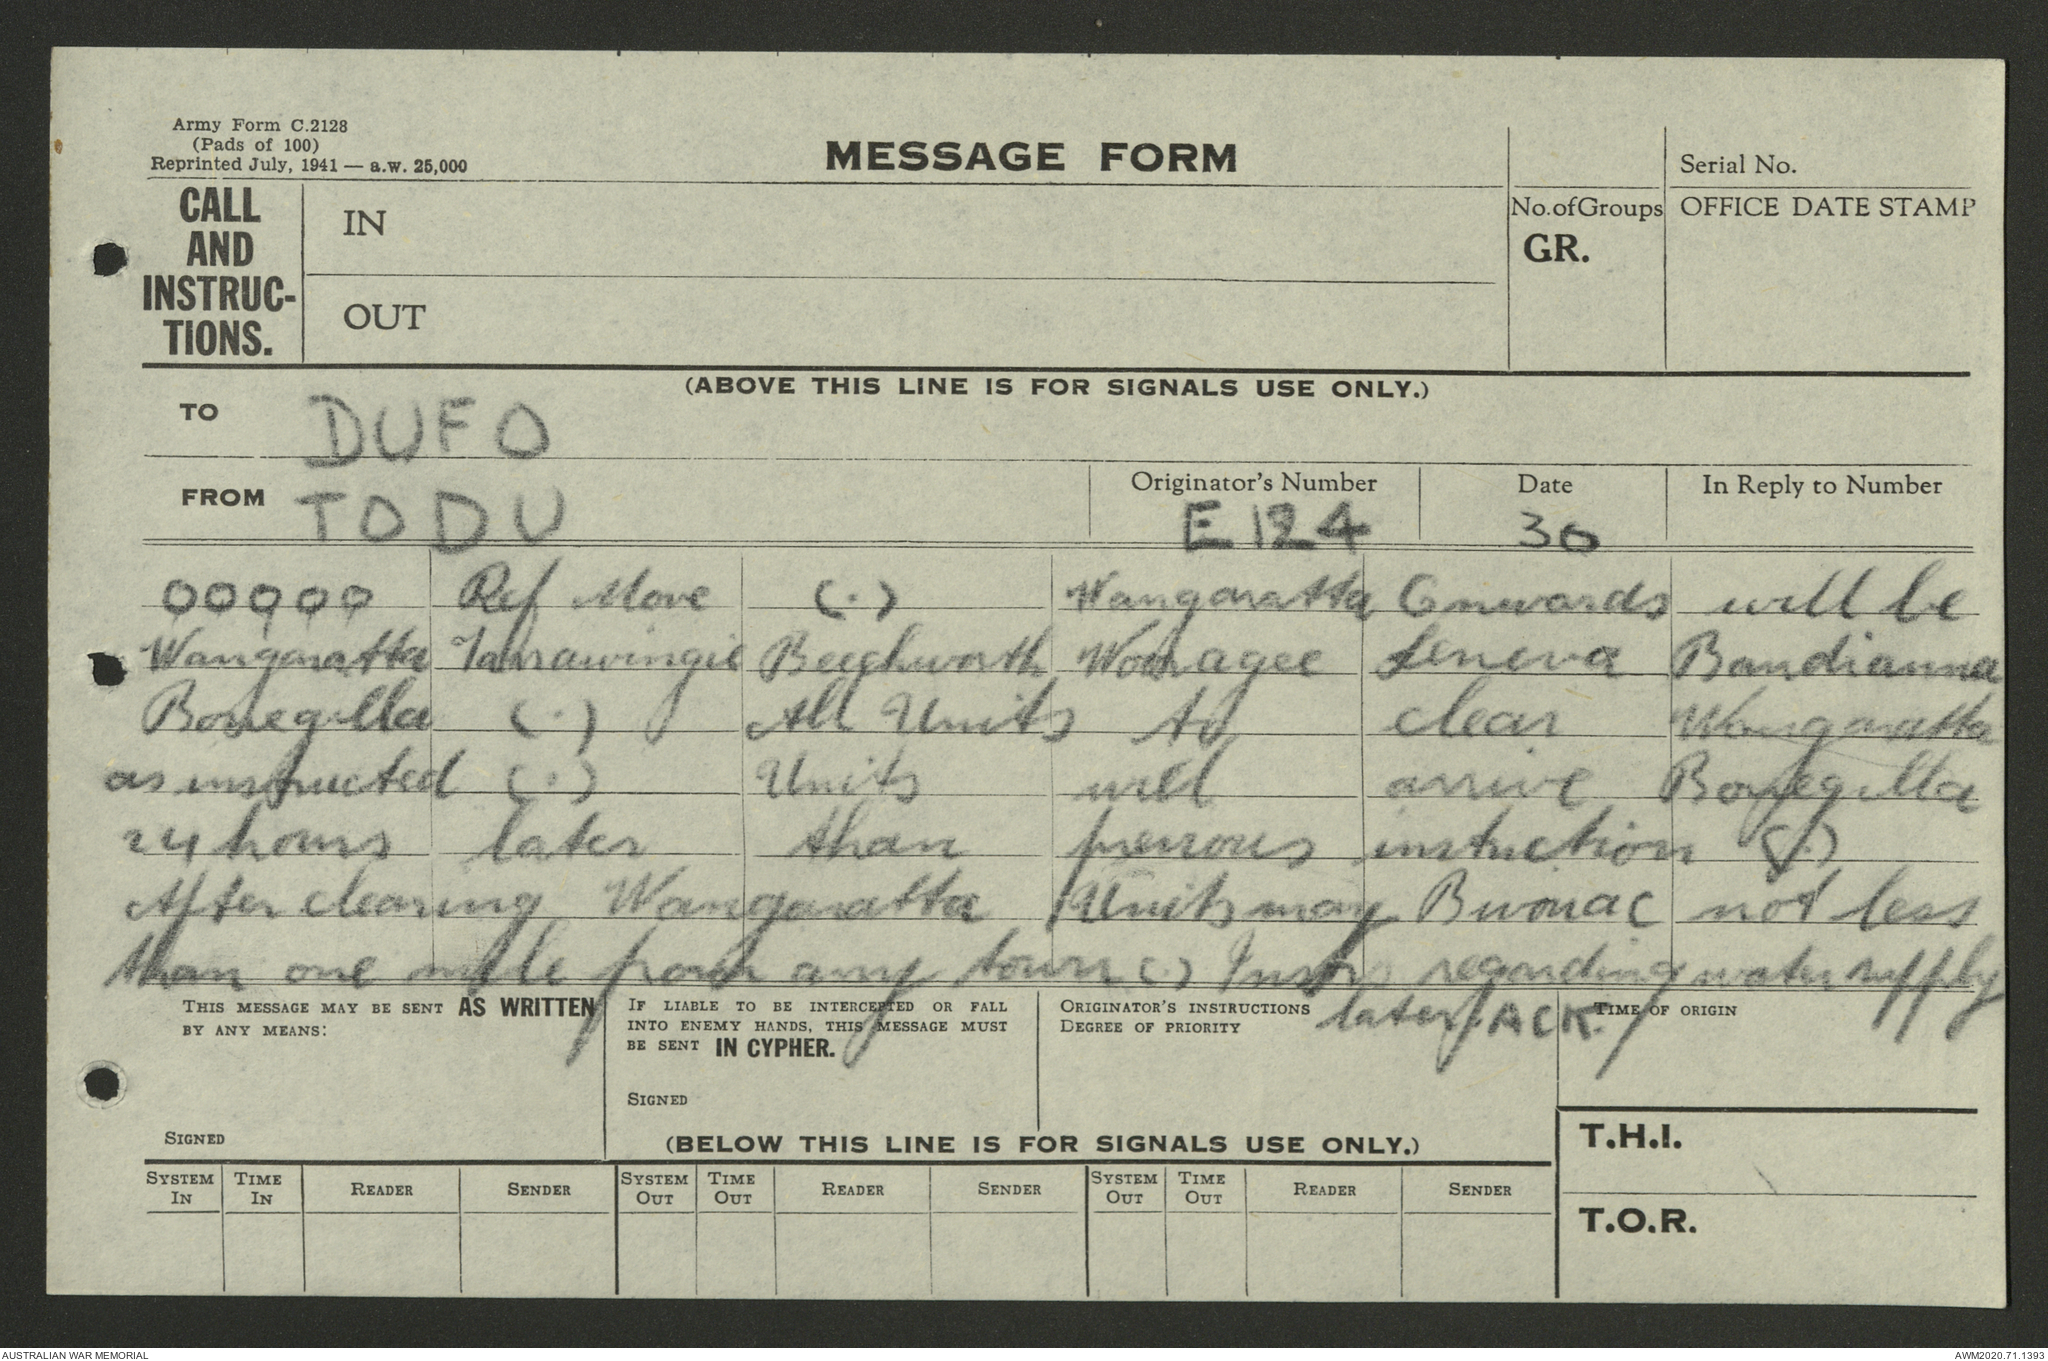 Army Form C.2128
(Pads of 100)
Reprinted July, 1941 — a.w. 25,000
MESSAGE FORM
Serial No.
CALL AND INSTRUC-TIONS.
IN
No. of Groups
GR.
OFFICE DATE STAMP
OUT
(ABOVE THIS LINE IS FOR SIGNALS USE ONLY.)
TO DUFO
FROM TODU
Originator's Number E124
Date 30
In Reply to Number
00900 Ref Move (.) Wangaratta Onwards will be
Wangaratta Tarrawingie Beechworth Wooragee Leneva Bandianna
Bonegilla (.) All Units to clear Wangaratta
as instructed (.) Units will arrive Bonegilla
24 hours later than previous instruction (.)
After clearing Wangaratta Units may Bivouac not less
than one mile from any town (.) Instrs regarding water supply
later / ACK. /
THIS MESSAGE MAY BE SENT AS WRITTEN
BY ANY MEANS:
SIGNED
IF LIABLE TO BE INTERCEPTED OR FALL
INTO ENEMY HANDS, THIS MESSAGE MUST
BE SENT IN CYPHER.
SIGNED
ORIGINATOR'S INSTRUCTIONS
DEGREE OF PRIORITY
TIME OF ORIGIN
(BELOW THIS LINE IS FOR SIGNALS USE ONLY.)
T.H.I.
T.O.R.
SYSTEM IN TIME IN READER SENDER SYSTEM OUT TIME OUT READER SENDER SYSTEM OUT TIME OUT READER SENDER
AUSTRALIAN WAR MEMORIAL
AWM2020.71.1393